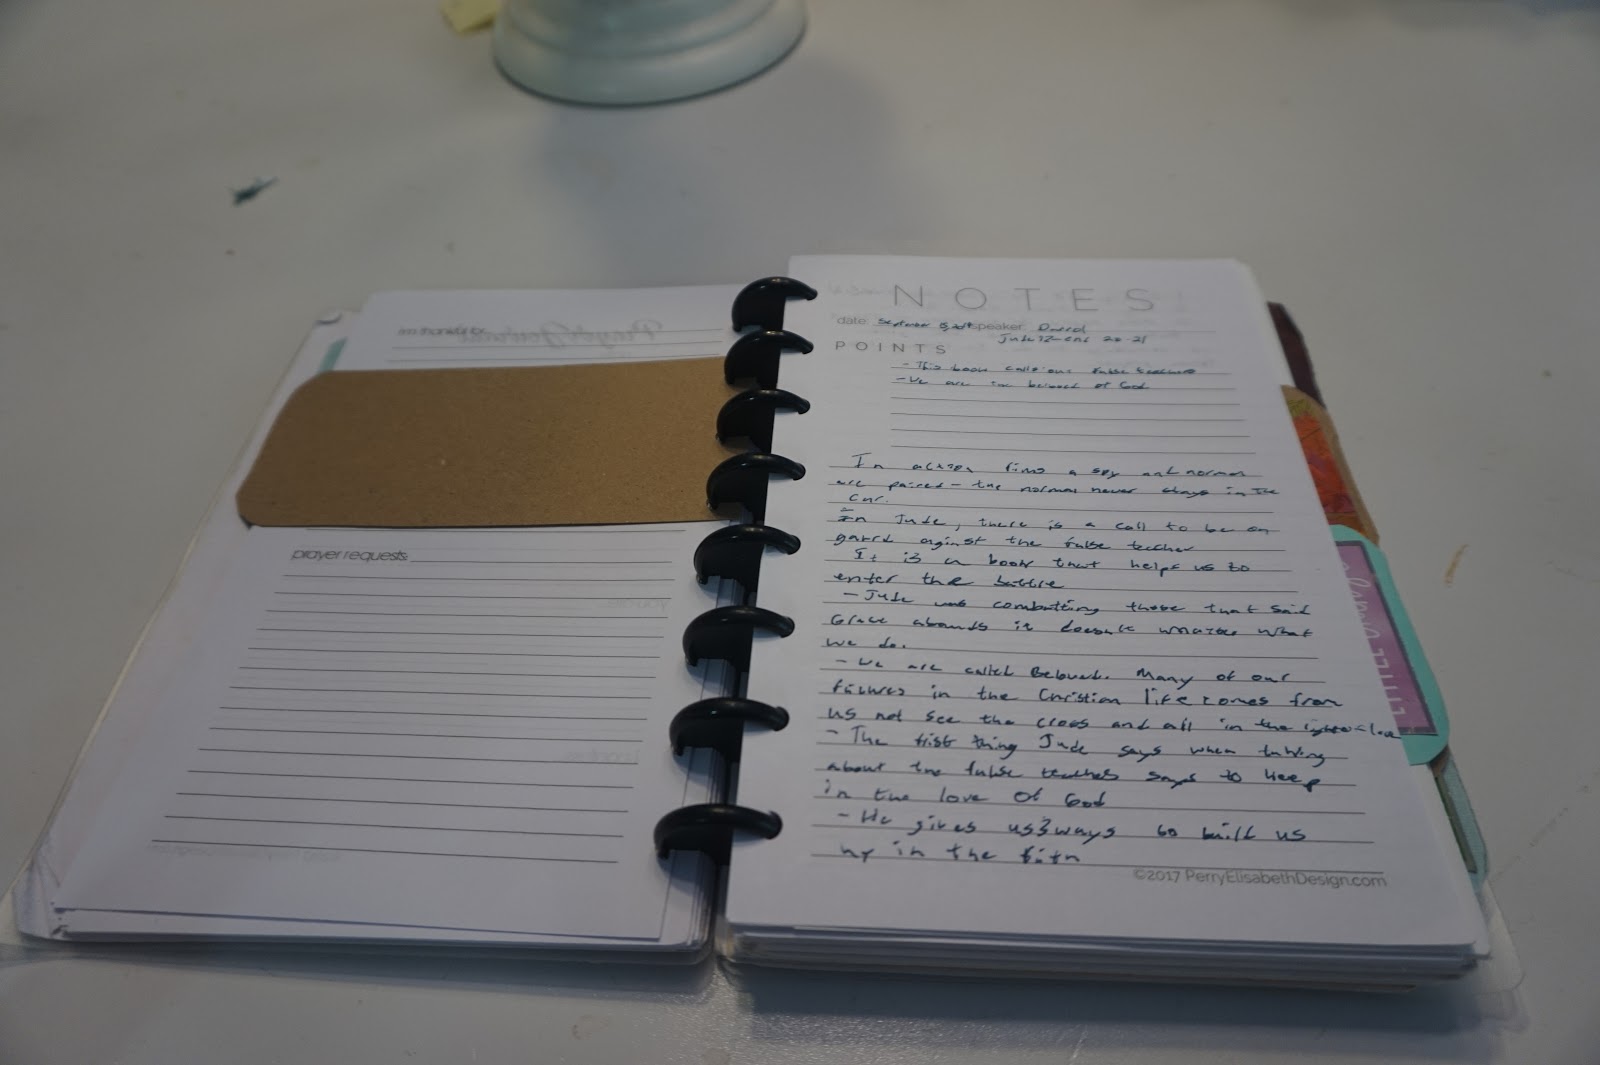 I'm thankful for:
prayer requests:
NOTES
date: September speaker: Darrol
Jude 17-end 20-21
POINTS
- This book calls out false teachers
- We are the beloved of God
In action films a spy and normal
are paired - the normal never stays in the
car.
In Jude, there is a call to be on
gaurd aginst the false teacher
It is a book that helps us to
enter the battle
- Jude was combatting those that said
Grace abounds it doesn't matter what
we do.
- We are called Beloved. Many of our
failures in the Christian life comes from
us not see the cross and all in the love
- The first thing Jude says when talking
about the false teaches says to keep
in the love of God
- He gives us 3 ways to build us
up in the faith
©2017 PerryElisabethDesign.com
LITTLE